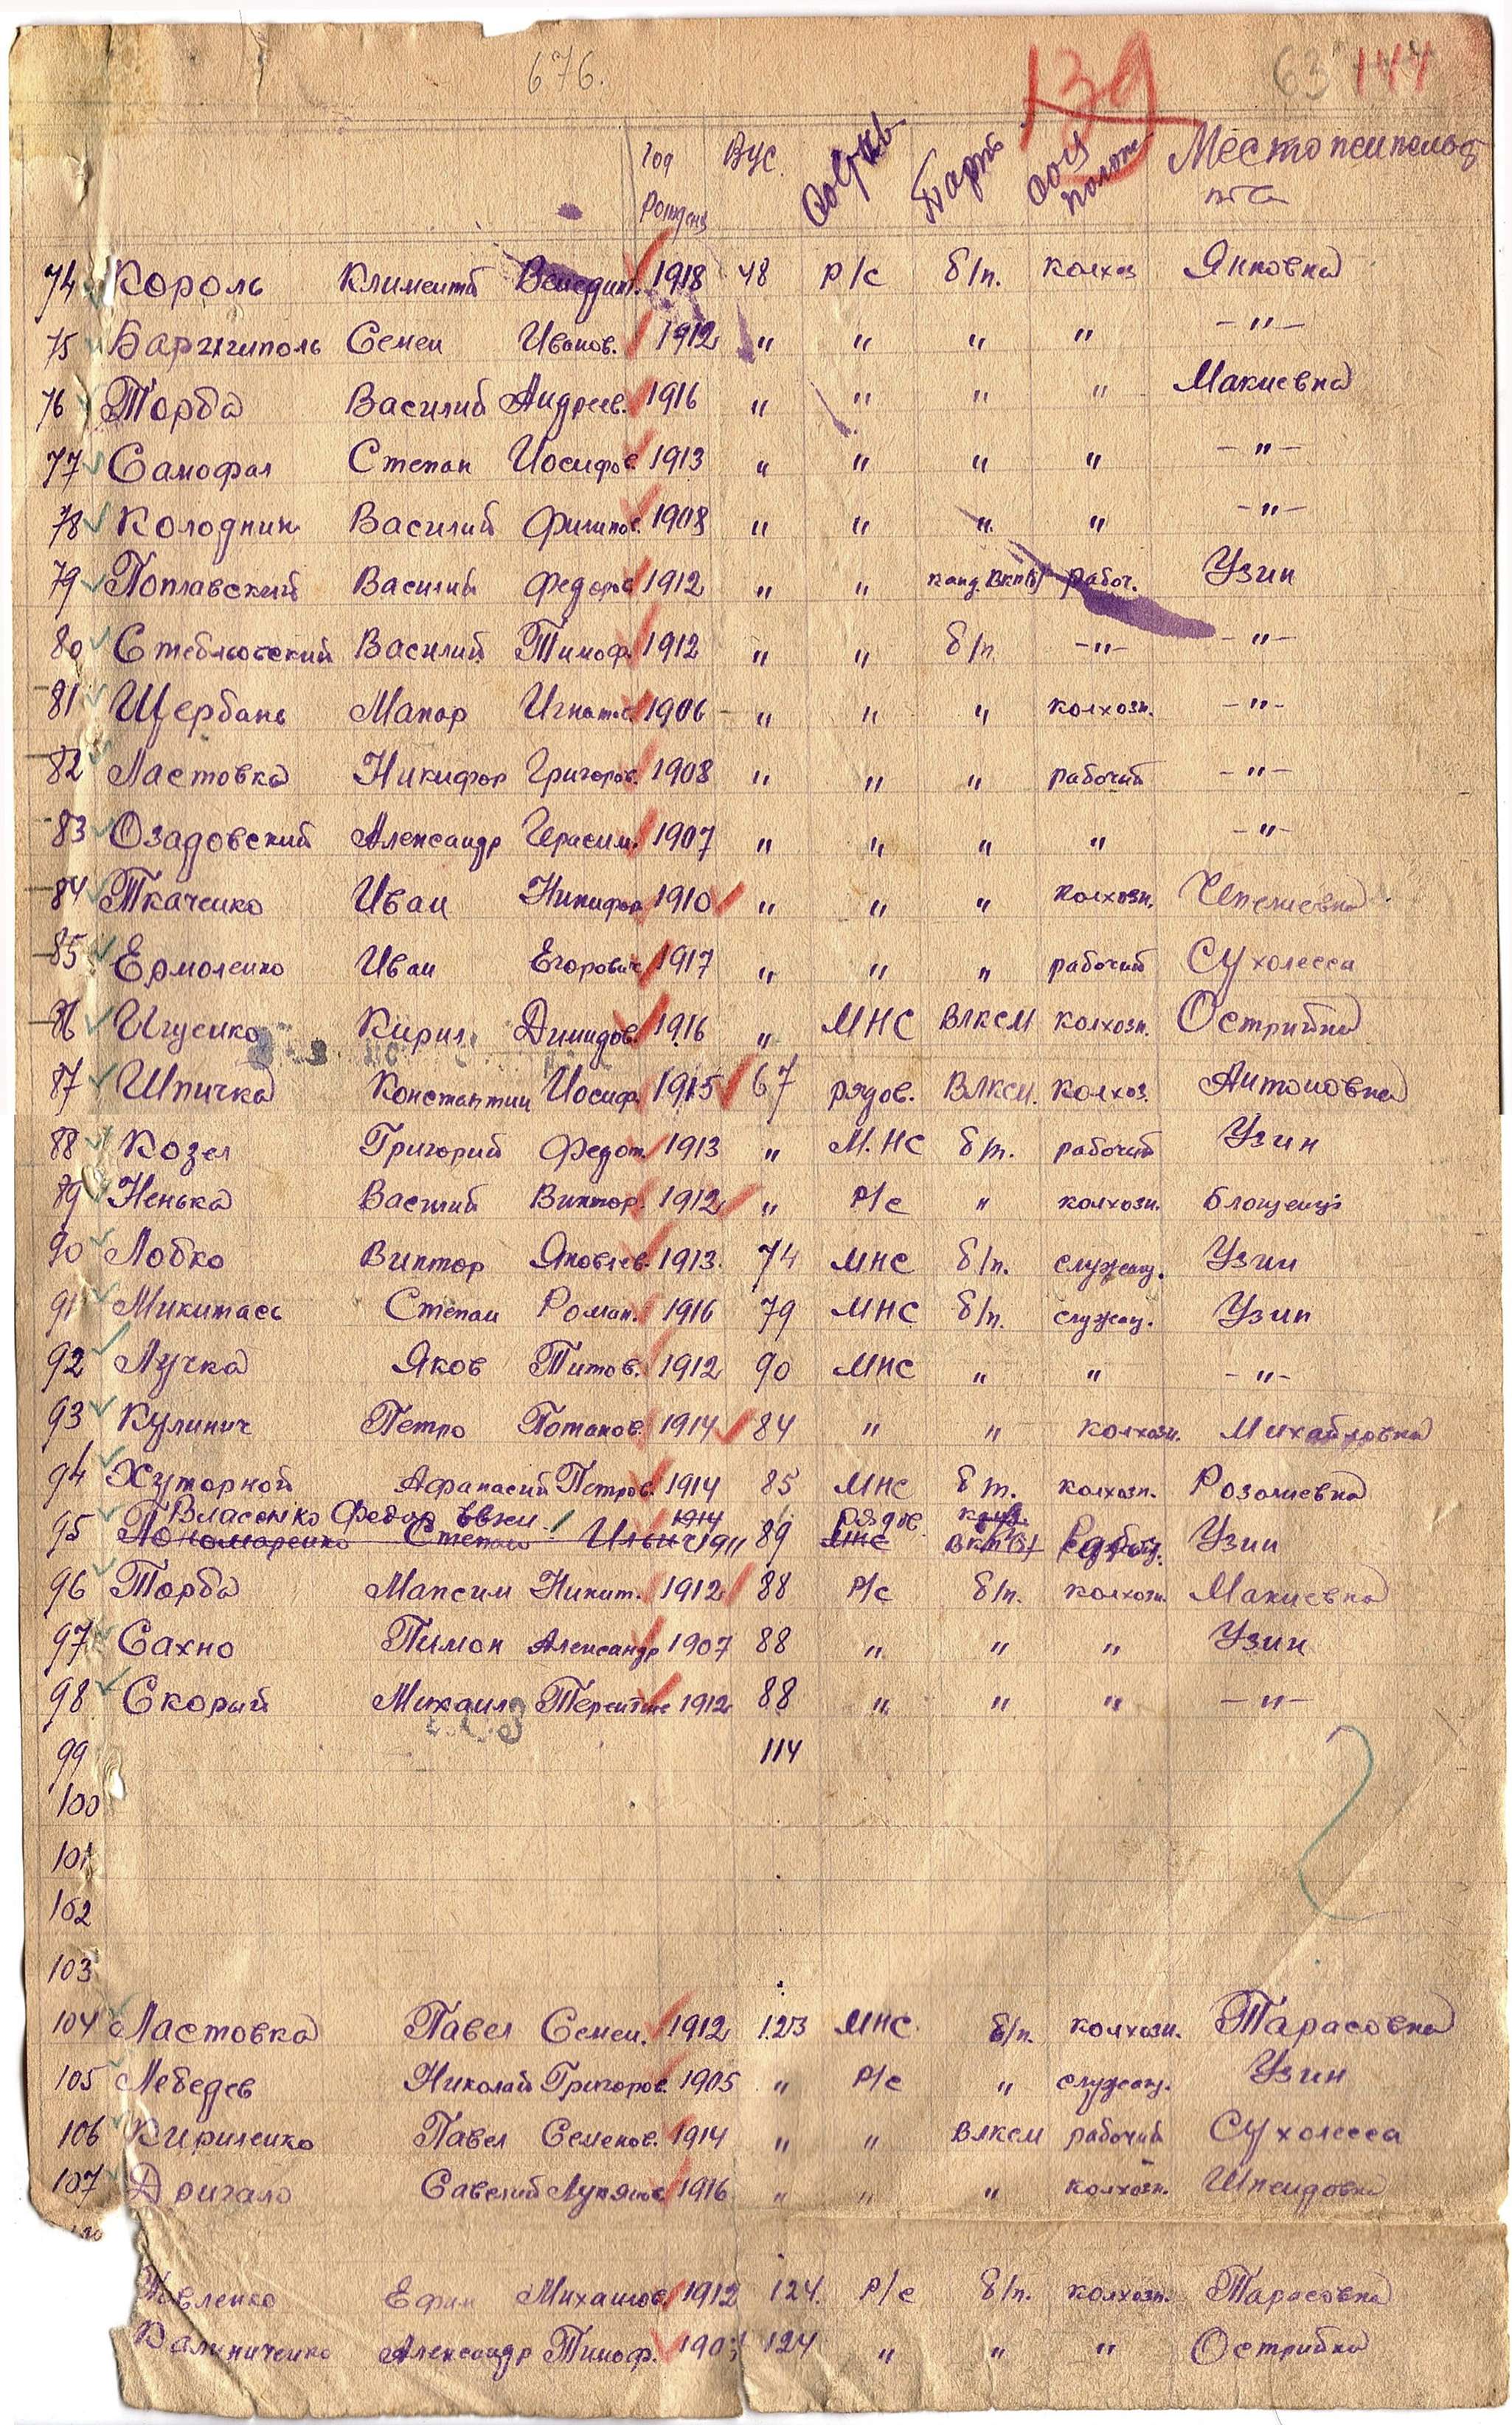 676. 139 63 144
Год рожден ВУС. Состав Парт. Соц полож Местожительства
74 Король Климентий Венедикт. 1918 48 р/с б/п. колхоз Янковка
75 Семен Иванов. 1912 " " " " -"-
76 Торба Василий Андреев. 1916 " " " " Макиевка
77 Самофал Степан Иосифов. 1913 " " " " -"-
78 Колодник Василий Филипов. 1908 " " " " -"-
79 Поплавский Василий Федоров 1912 " " канд. ВКП(б) рабоч. Узин
80 Стеблювский Василий Тимоф. 1912 " " б/п -"- -"-
81 Щербань Макар Игнатов 1906 " " " колхозн. -"-
82 Ластовка Никифор Григоров. 1908 " " " рабочий -"-
83 Озадовский Александр Герасим. 1907 " " " " -"-
84 Ткаченко Иван Никифор 1910 " " " колхозн.
85 Ермоленко Иван Егорович 1917 " " " рабочий Сухолесса
86 Игуенко Кирил Димидов. 1916 " МНС ВЛКСМ колхозн. Острийка
87 Шпичка Константин Иосиф. 1915 67 рядов. ВЛКСМ. колхоз. Антоновка
88 Козел Григорий Федот. 1913 " М.НС б/п. рабочий Узин
89 Ненька Василий Виктор. 1912 " Р/с " колхозн.
90 Лобко Виктор Яковлев. 1913. 74 МНС б/п. служащ. Узин
91 Микитась Степан Роман. 1916 79 МНС б/п. служащ. Узин
92 Лучка Яков Титов. 1912 90 МНС " " -"-
93 Кулинич Петро Потапов. 1914 84 " " колхозн. Михайловка
94 Хуторной Афанасий Петров. 1914 85 МНС б/п. колхозн. Розалиевка
Власенко Федор 1914 рядов. канд.
95 Пономаренко Степан Ильич 1911 89 МНС ВКП(б) Узин
96 Торба Максим Никит. 1912 88 Р/с б/п. колхозн. Макиевка
97 Сахно Пимон Александр 1907 88 " " " Узин
98 Скорый Михаил Терентие 1912 88 " " " -"-
99 114
100
101
102
103
104 Ластовка Павел Семен. 1912 123 МНС. б/п. колхозн. Тарасовка
105 Лебедев Николай Григоров. 1905 " Р/с " служащ. Узин
106 Кириленко Павел Семенов. 1914 " " ВЛКСМ рабочий Сухолесса
107 Дригало Савелий Лукянов 1916 " " " колхозн. Шпендовка
Ефим Михайлов. 1912 124. Р/с б/п. колхозн. Тарасовка
Калиниченко Александр Тимоф. 124 " " " Острийка